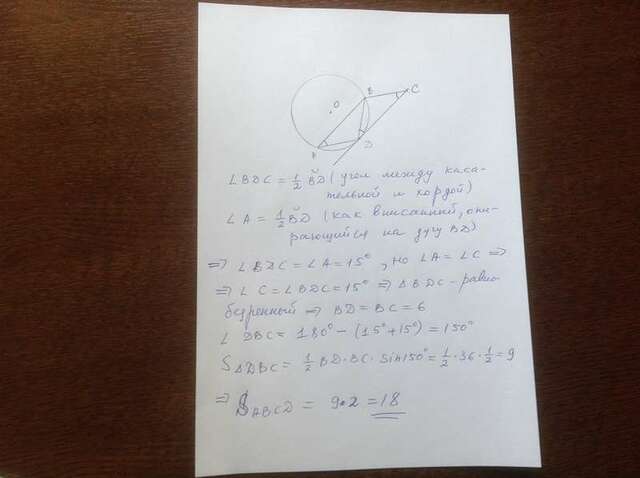 B
C
O
A
D
∠BDC = 1/2 B͝D (угол между каса-
тельной и хордой)
∠A = 1/2 B͝D (как вписанный, опи-
рающийся на дугу BD)
⇒ ∠BDC = ∠A = 15°, но ∠A = ∠C ⇒
⇒ ∠C = ∠BDC = 15° ⇒ △BDC – равно
бедренный ⇒ BD = BC = 6
∠DBC = 180° − (15° + 15°) = 150°
S△DBC = 1/2 BD · BC · sin150° = 1/2 · 36 · 1/2 = 9
⇒ SABCD = 9·2 = 18